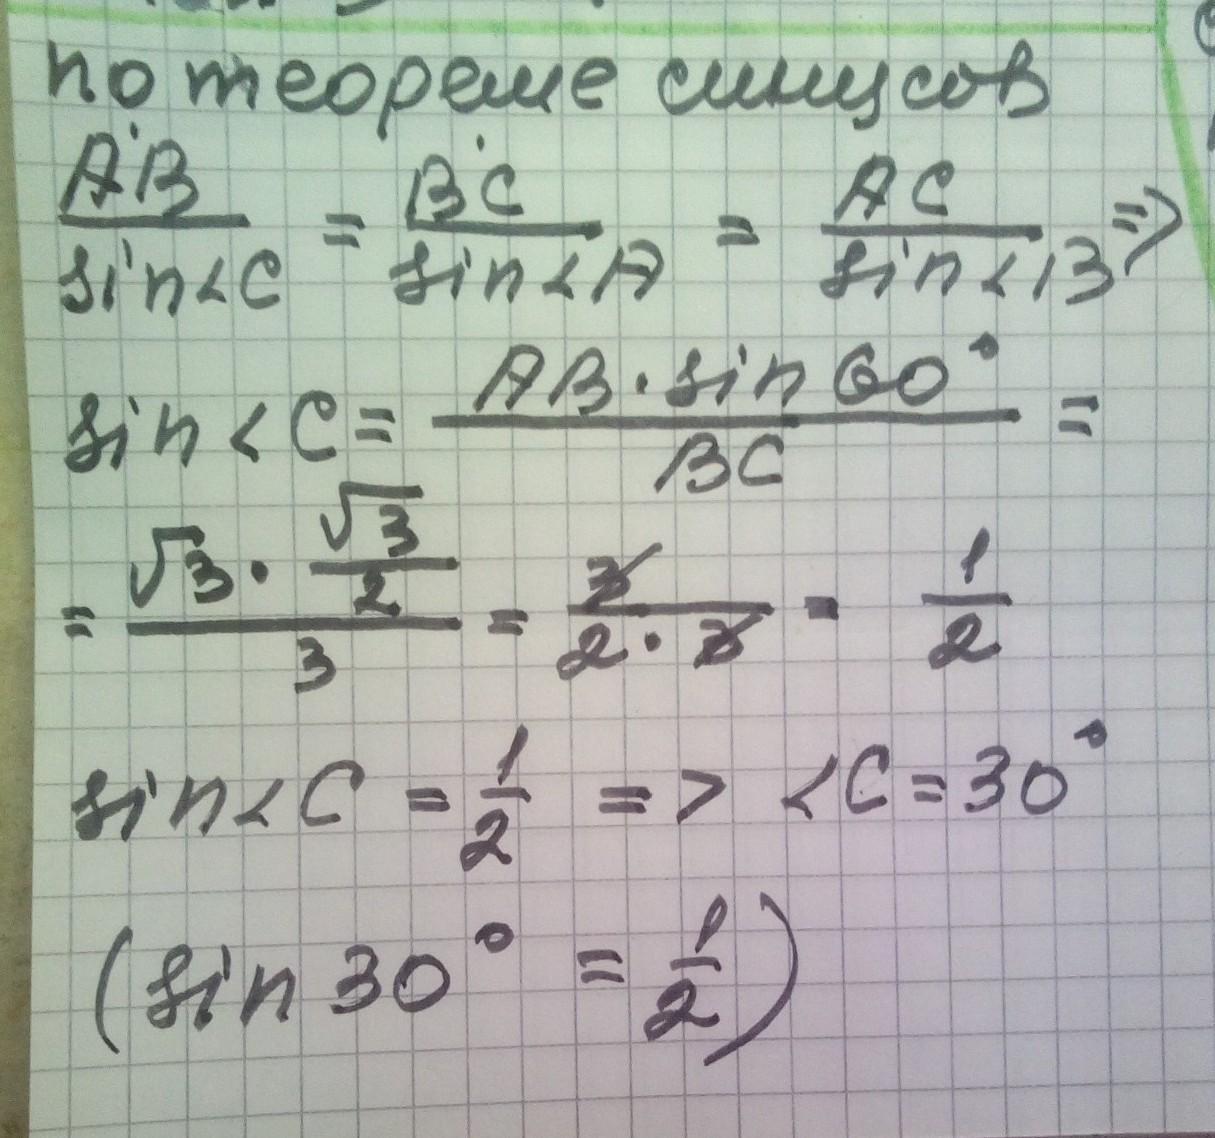 по теореме синусов
AB/sin<C = BC/sin<A = AC/sin<B =>
sin<C = AB·sin60°/BC =
= √3·√3/2/3 = 3/2·3 = 1/2
sin<C = 1/2 => <C = 30°
(sin30° = 1/2)